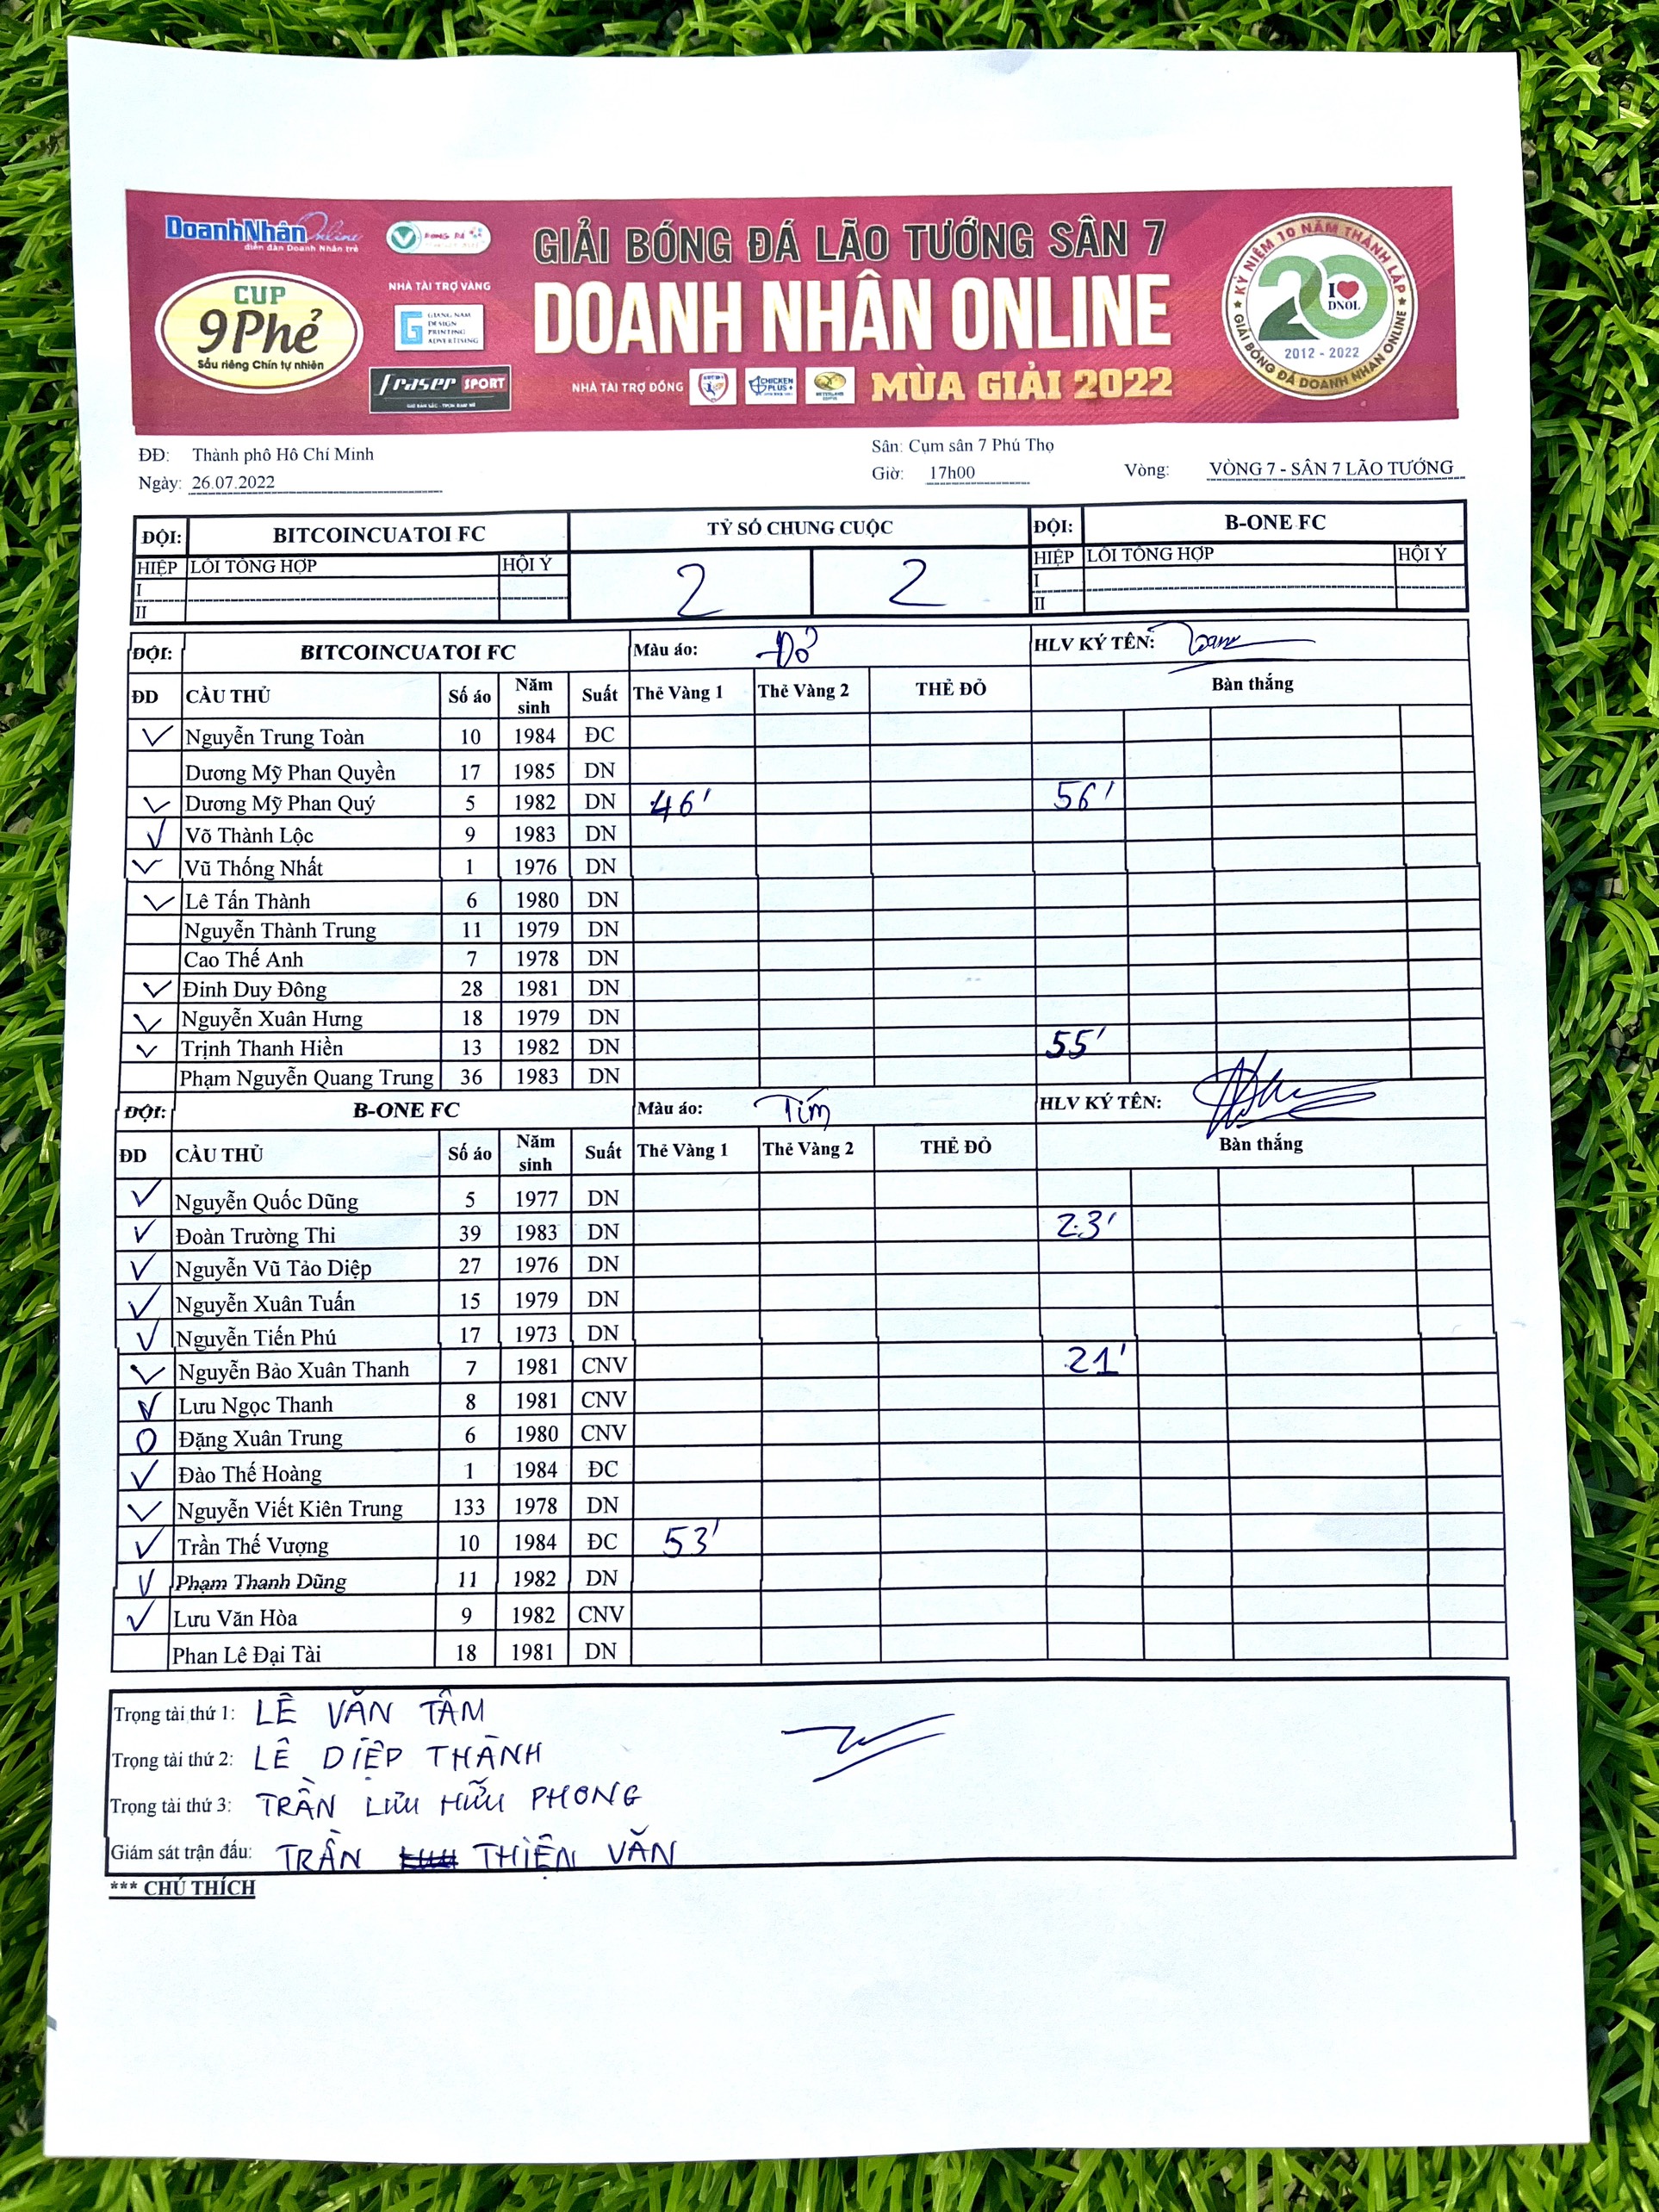 DoanhNhân Online
diễn đàn Doanh Nhân trẻ
CUP
9Phẻ
Sầu riêng Chín tự nhiên
NHÀ TÀI TRỢ VÀNG
GIANG NAM
DESIGN
PRINTING
ADVERTISING
fraser SPORT
GIẢI BÓNG ĐÁ LÃO TƯỚNG SÂN 7
DOANH NHÂN ONLINE
NHÀ TÀI TRỢ ĐỒNG
CHICKEN
PLUS+
MÙA GIẢI 2022
KỶ NIỆM 10 NĂM THÀNH LẬP
20
I ❤ DNOL
2012 - 2022
GIẢI BÓNG ĐÁ DOANH NHÂN ONLINE
ĐĐ: Thành phố Hồ Chí Minh Sân: Cụm sân 7 Phú Thọ
Ngày: 26.07.2022 Giờ: 17h00 Vòng: VÒNG 7 - SÂN 7 LÃO TƯỚNG
ĐỘI: BITCOINCUATOI FC TỶ SỐ CHUNG CUỘC ĐỘI: B-ONE FC
HIỆP LỖI TỔNG HỢP HỘI Ý 2 2 HIỆP LỖI TỔNG HỢP HỘI Ý
I I
II II
ĐỘI: BITCOINCUATOI FC Màu áo: Đỏ HLV KÝ TÊN:
ĐD CẦU THỦ Số áo Năm sinh Suất Thẻ Vàng 1 Thẻ Vàng 2 THẺ ĐỎ Bàn thắng
✓ Nguyễn Trung Toàn 10 1984 ĐC
Dương Mỹ Phan Quyền 17 1985 DN
✓ Dương Mỹ Phan Quý 5 1982 DN 46' 56'
✓ Võ Thành Lộc 9 1983 DN
✓ Vũ Thống Nhất 1 1976 DN
✓ Lê Tấn Thành 6 1980 DN
Nguyễn Thành Trung 11 1979 DN
Cao Thế Anh 7 1978 DN
✓ Đinh Duy Đông 28 1981 DN
✓ Nguyễn Xuân Hưng 18 1979 DN
✓ Trịnh Thanh Hiền 13 1982 DN 55'
Phạm Nguyễn Quang Trung 36 1983 DN
ĐỘI: B-ONE FC Màu áo: Tím HLV KÝ TÊN:
ĐD CẦU THỦ Số áo Năm sinh Suất Thẻ Vàng 1 Thẻ Vàng 2 THẺ ĐỎ Bàn thắng
✓ Nguyễn Quốc Dũng 5 1977 DN
✓ Đoàn Trường Thi 39 1983 DN 23'
✓ Nguyễn Vũ Tảo Diệp 27 1976 DN
✓ Nguyễn Xuân Tuấn 15 1979 DN
✓ Nguyễn Tiến Phú 17 1973 DN
✓ Nguyễn Bảo Xuân Thanh 7 1981 CNV 21'
✓ Lưu Ngọc Thanh 8 1981 CNV
O Đặng Xuân Trung 6 1980 CNV
✓ Đào Thế Hoàng 1 1984 ĐC
✓ Nguyễn Viết Kiên Trung 133 1978 DN
✓ Trần Thế Vượng 10 1984 ĐC 53'
✓ Phạm Thanh Dũng 11 1982 DN
✓ Lưu Văn Hòa 9 1982 CNV
Phan Lê Đại Tài 18 1981 DN
Trọng tài thứ 1: LÊ VĂN TÂM
Trọng tài thứ 2: LÊ DIỆP THÀNH
Trọng tài thứ 3: TRẦN LƯU HỮU PHONG
Giám sát trận đấu: TRẦN THIỆN VĂN
*** CHÚ THÍCH